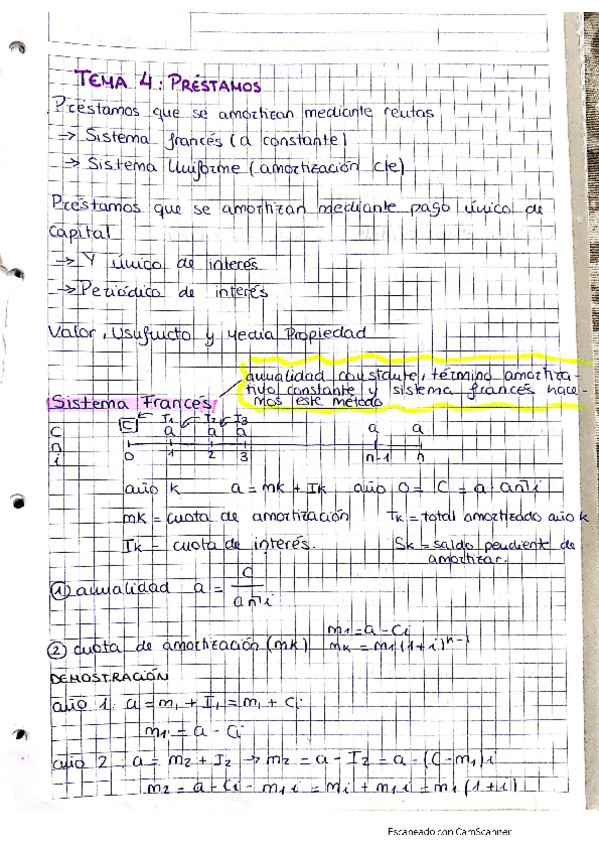 TEMA 4: PRÉSTAMOS
Préstamos que se amortizan mediante rentas
→ Sistema francés (a constante)
→ Sistema Uniforme (amortización cte)
Préstamos que se amortizan mediante pago único de
capital
→ Y único de interés
→ Periódico de interés
Valor, Usufructo y Nuda Propiedad
anualidad constante, término amortiza-
tivo constante y sistema francés hace-
mos este método
Sistema Francés
C I1 I2 I3
C a a a a a
n
i 0 1 2 3 n-1 n
año k a = mk + Ik año 0 = C = a · an¬i
mk = cuota de amortización Tk = total amortizado año k
Ik = cuota de interés. Sk = saldo pendiente de
amortizar.
① anualidad a = C / an¬i
② cuota de amortización (mk) m1 = a - Ci
mk = m1 (1+i)^k-1
DEMOSTRACIÓN
año 1: a = m1 + I1 = m1 + Ci
m1 = a - Ci
año 2: a = m2 + I2 → m2 = a - I2 = a - (C - m1)i
m2 = a - Ci - m1 i = m1 + m1 i = m1 (1+i)
Escaneado con CamScanner